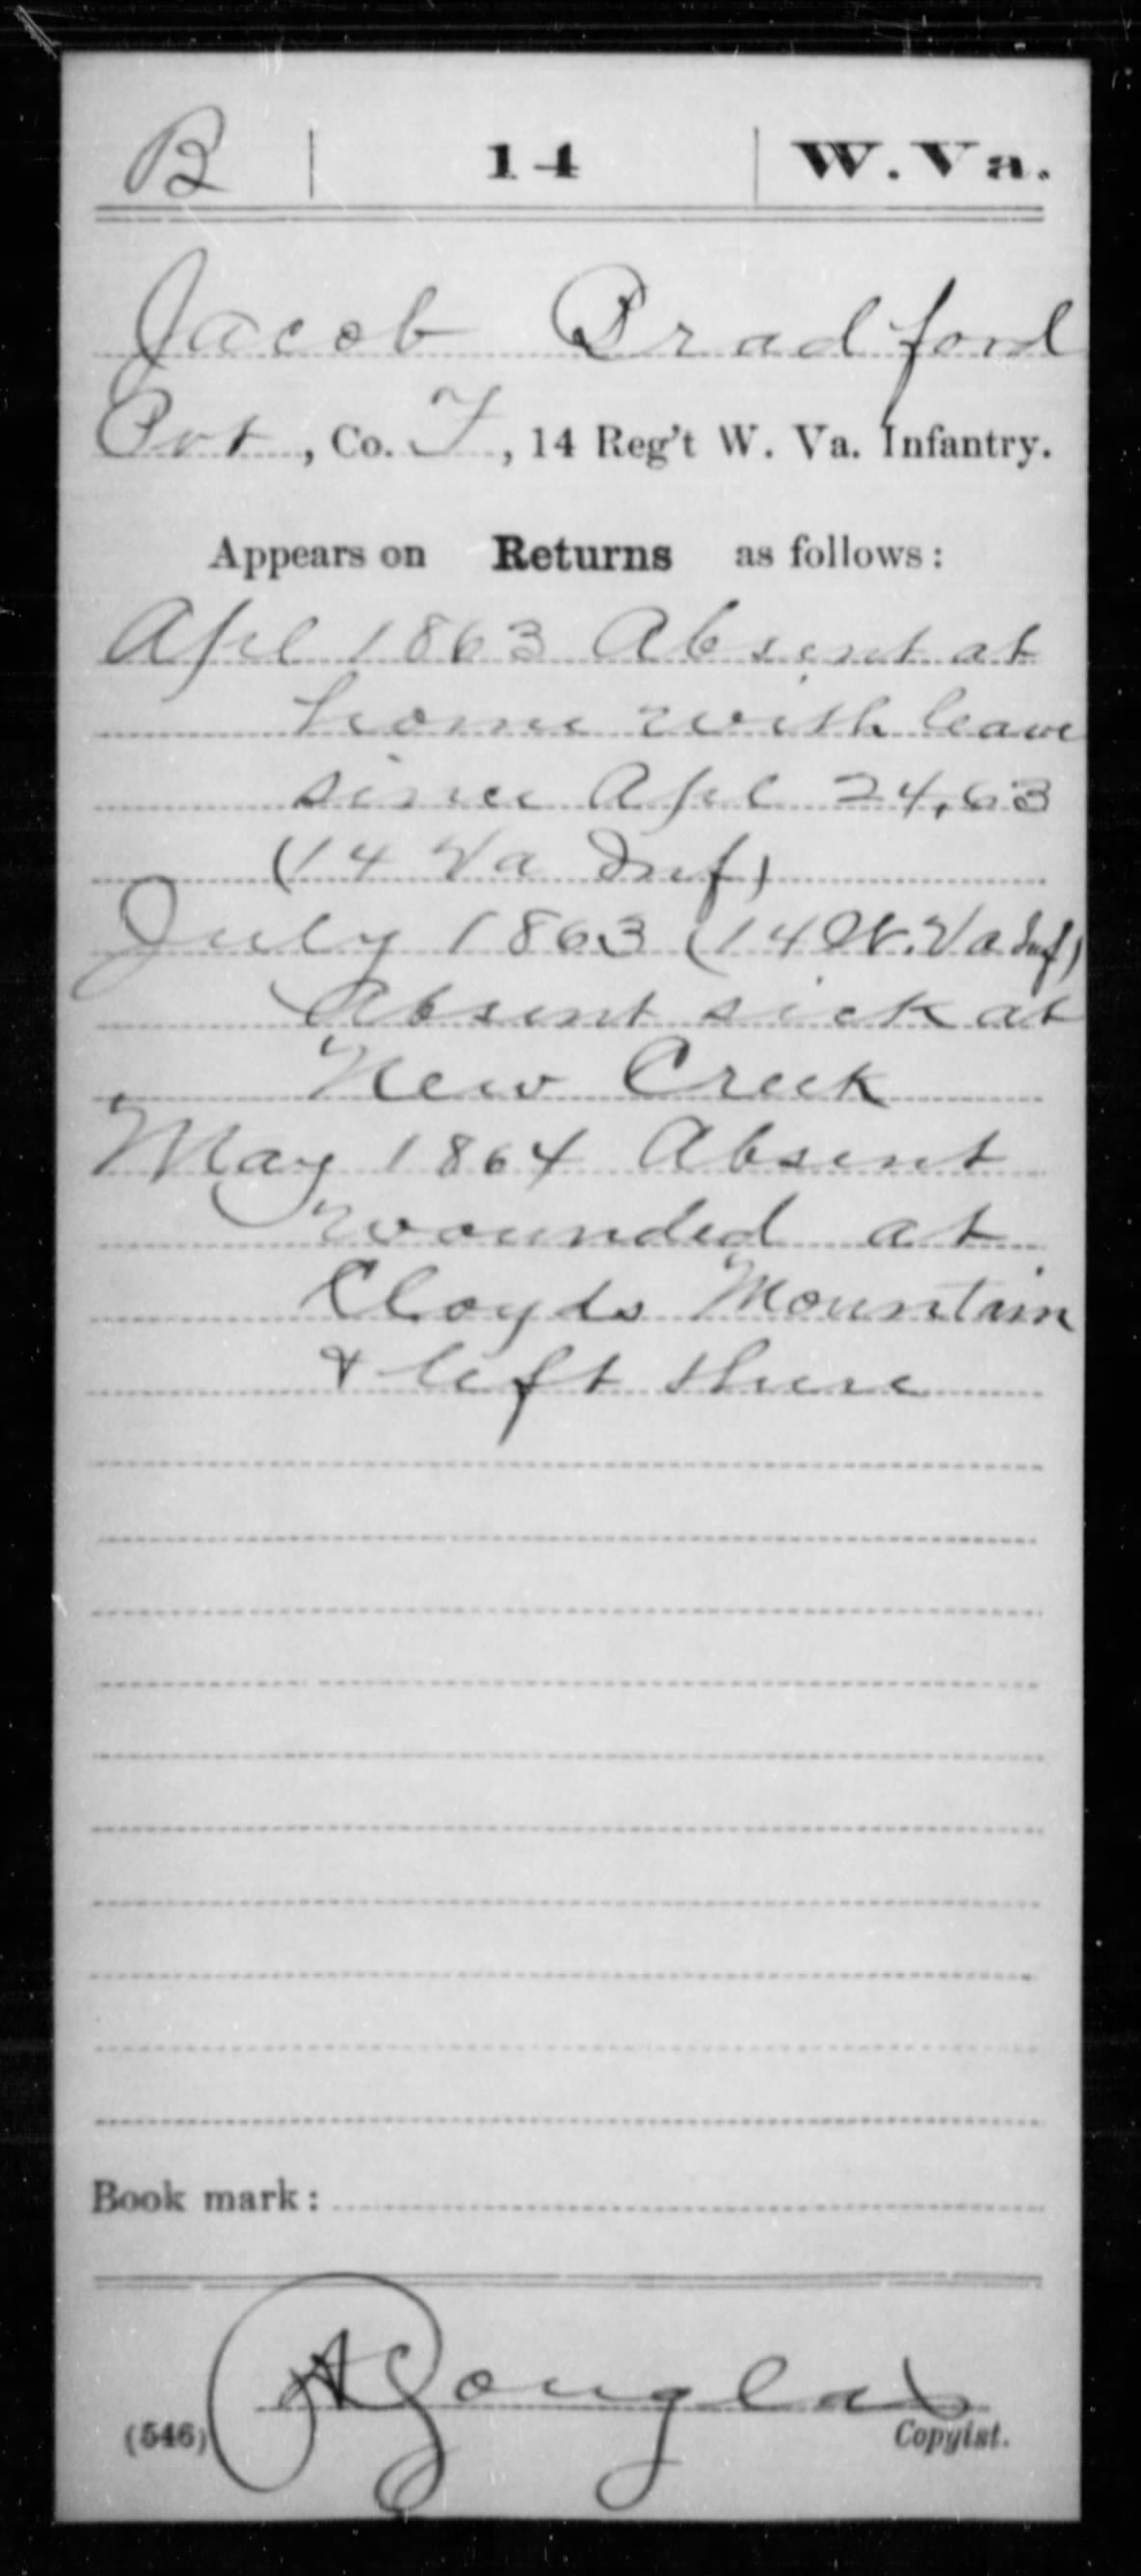 B | 14 | W. Va.
Jacob Bradford
Pvt, Co. F, 14 Reg't W. Va. Infantry.
Appears on Returns as follows:
Apl 1863 Absent at
home with leave
since Apl 24, 63
(14 Va Inf)
July 1863 (14 W. Va Inf)
Absent sick at
New Creek
May 1864 Absent
wounded at
Cloyds Mountain
& left there
Book mark:
Douglas
(546) Copyist.